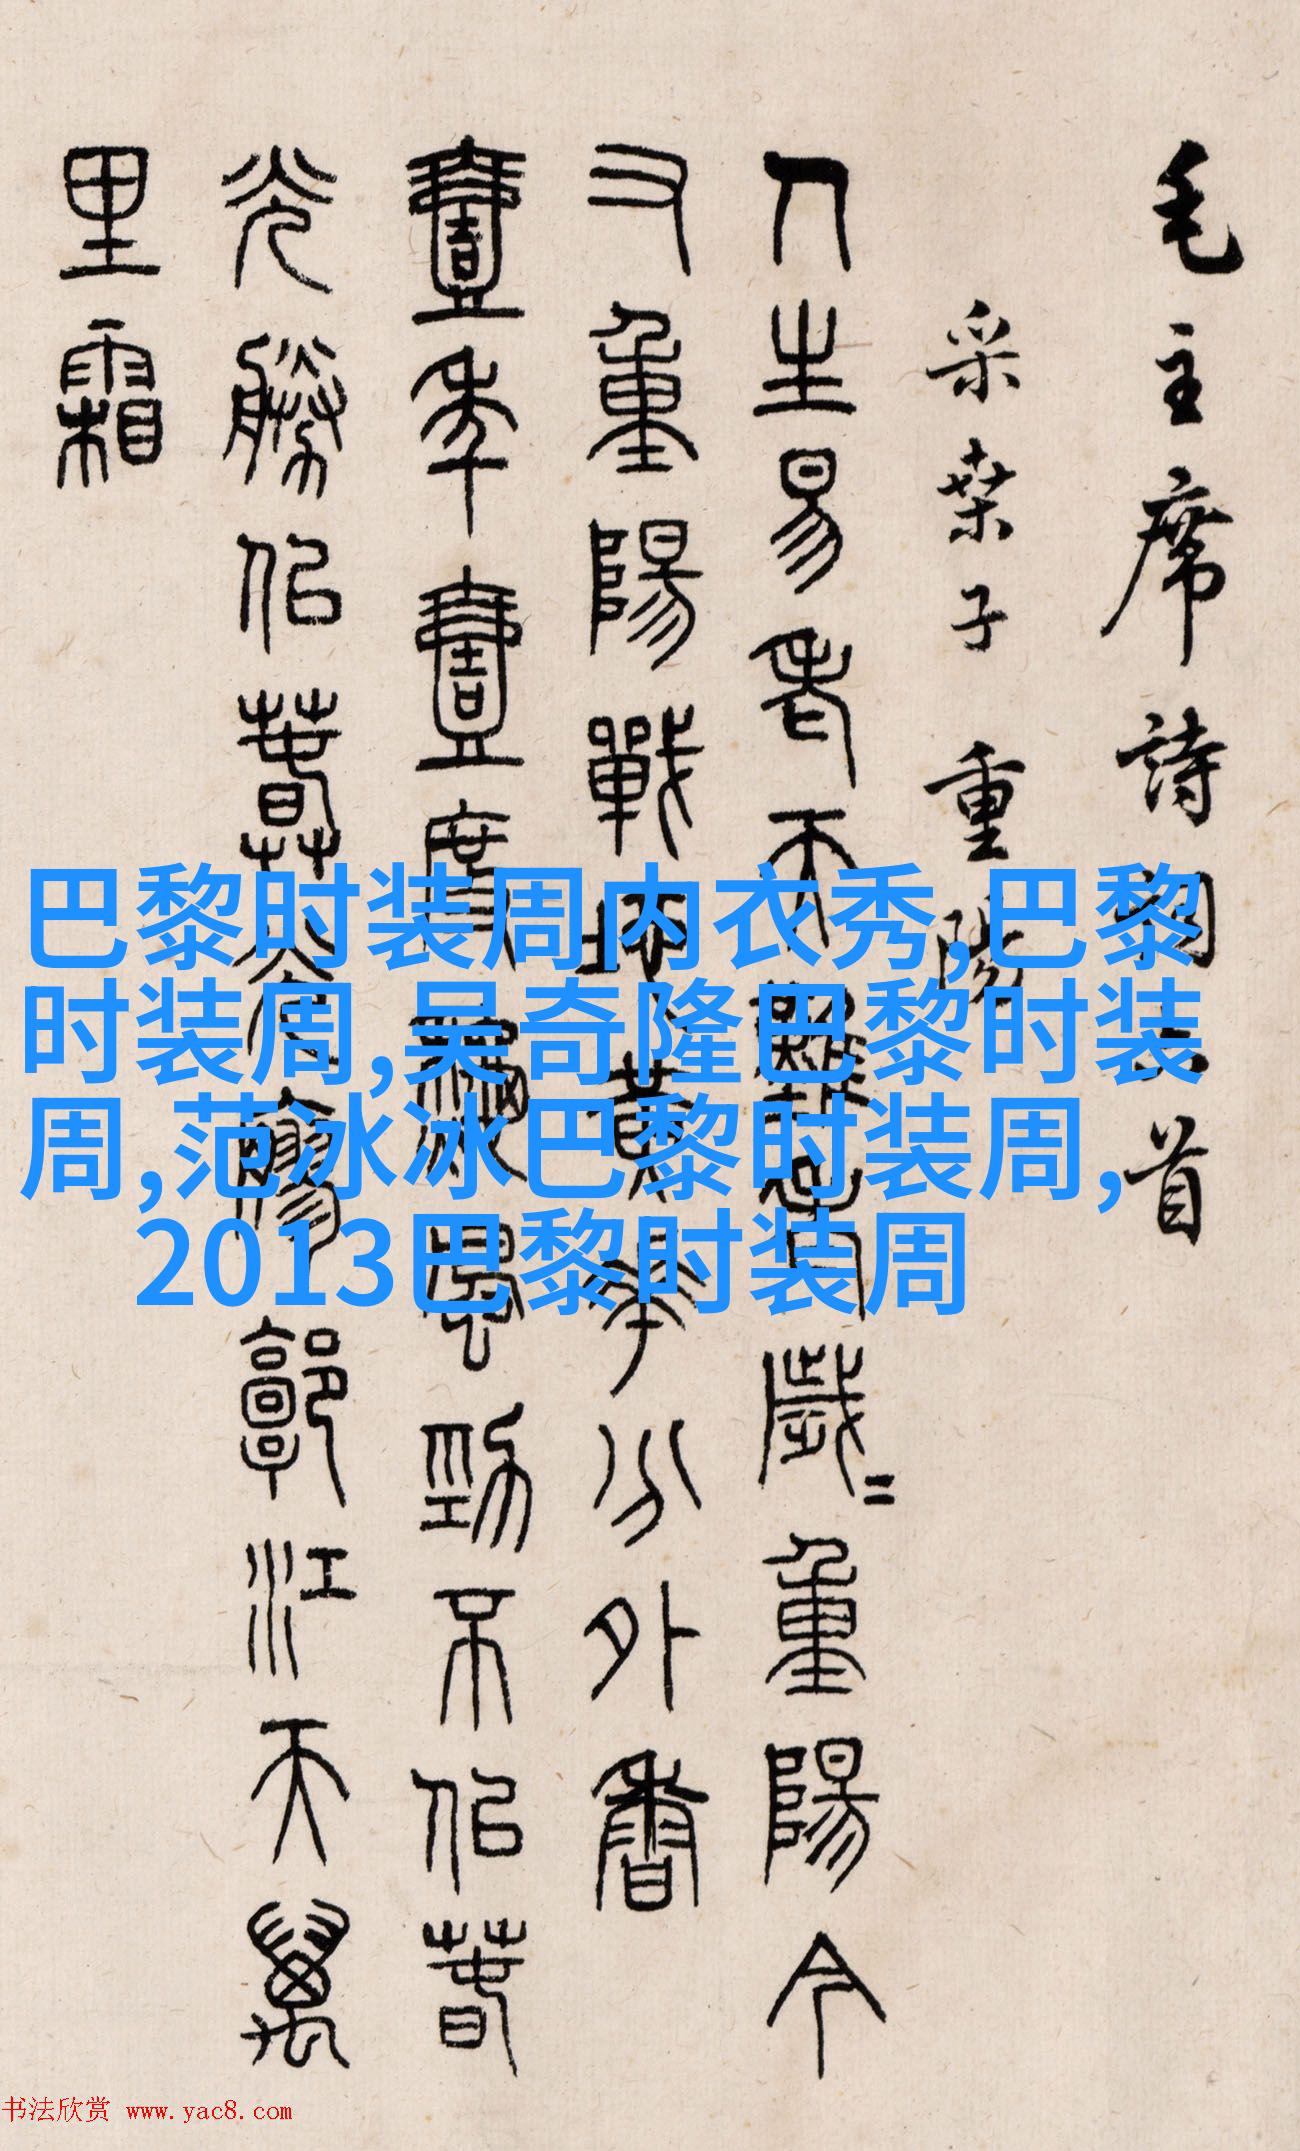 毛主席詩詞首
采桒子 重陽
人生易老天難老歲=重陽今
又重陽戰地黃華分外香
壹年壹度秋風勁不似春
光勝似春光廫郭江天萬
里霜
巴黎时装周内衣秀,巴黎
时装周,吴奇隆巴黎时装
周,范冰冰巴黎时装周,
2013巴黎时装周
书法欣赏 www.yac8.com